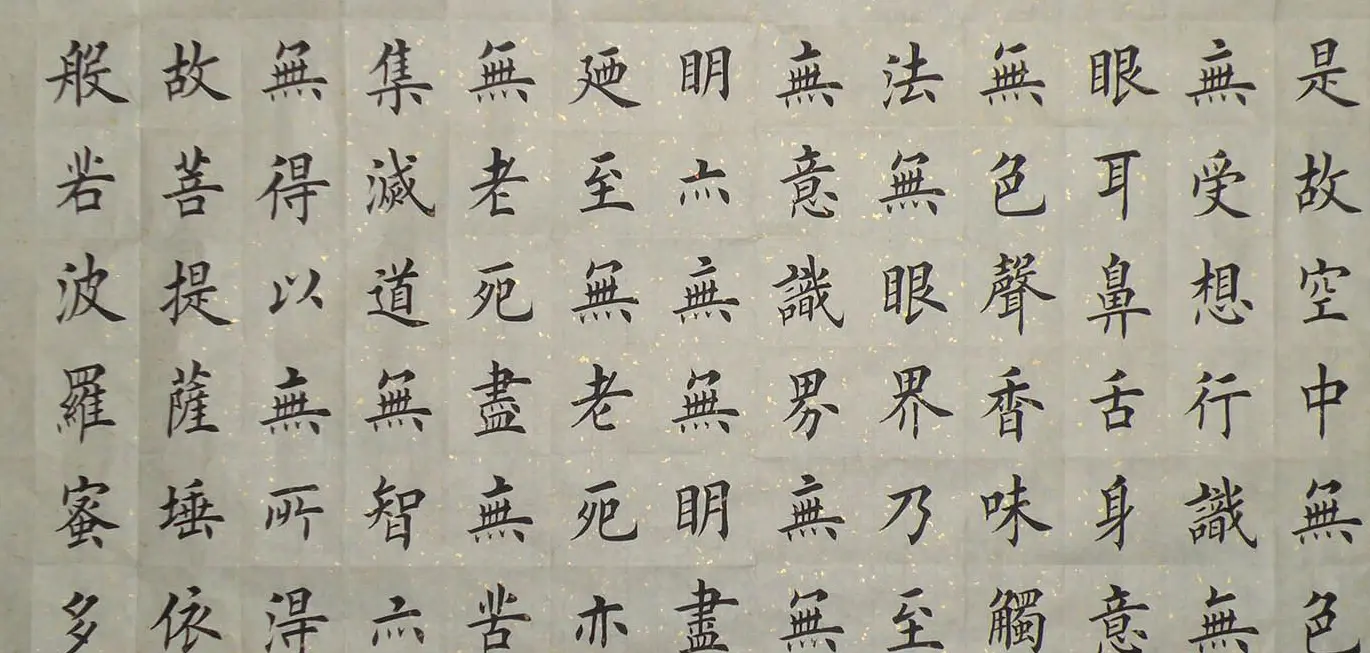 是故空中無色
無受想行識無
眼耳鼻舌身意
無色聲香味觸
法無眼界乃至
無意識界無無
明亦無無明盡
廼至無老死亦
無老死盡無苦
集滅道無智亦
無得以無所得
故菩提薩埵依
般若波羅蜜多